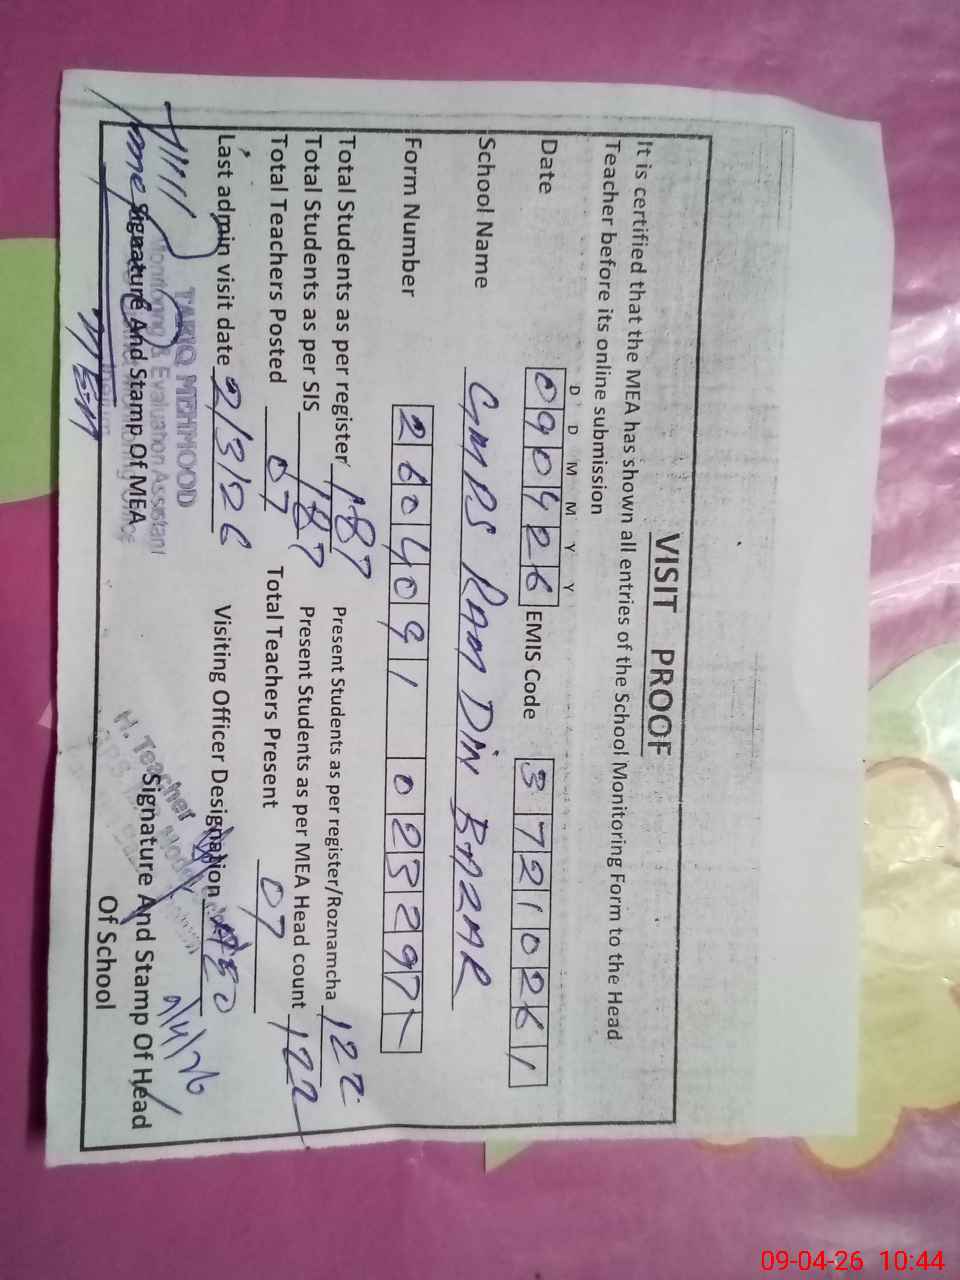 VISIT PROOF
It is certified that the MEA has shown all entries of the School Monitoring Form to the Head
Teacher before its online submission
D D M M Y Y
Date 090426 EMIS Code 37210261
School Name GMPS RAM DIN BAZAR
Form Number 2604091 0232971
Total Students as per register 187 Present Students as per register/Roznamcha 122
Total Students as per SIS 187 Present Students as per MEA Head count 122
Total Teachers Posted 07 Total Teachers Present 07
Last admin visit date 2/3/26 Visiting Officer Designation AEO
TARIQ MEHMOOD
Monitoring & Evaluation Assistant
Signature And Stamp Of MEA
H. Teacher
9/4/26
Signature And Stamp Of Head
Of School
09-04-26 10:44